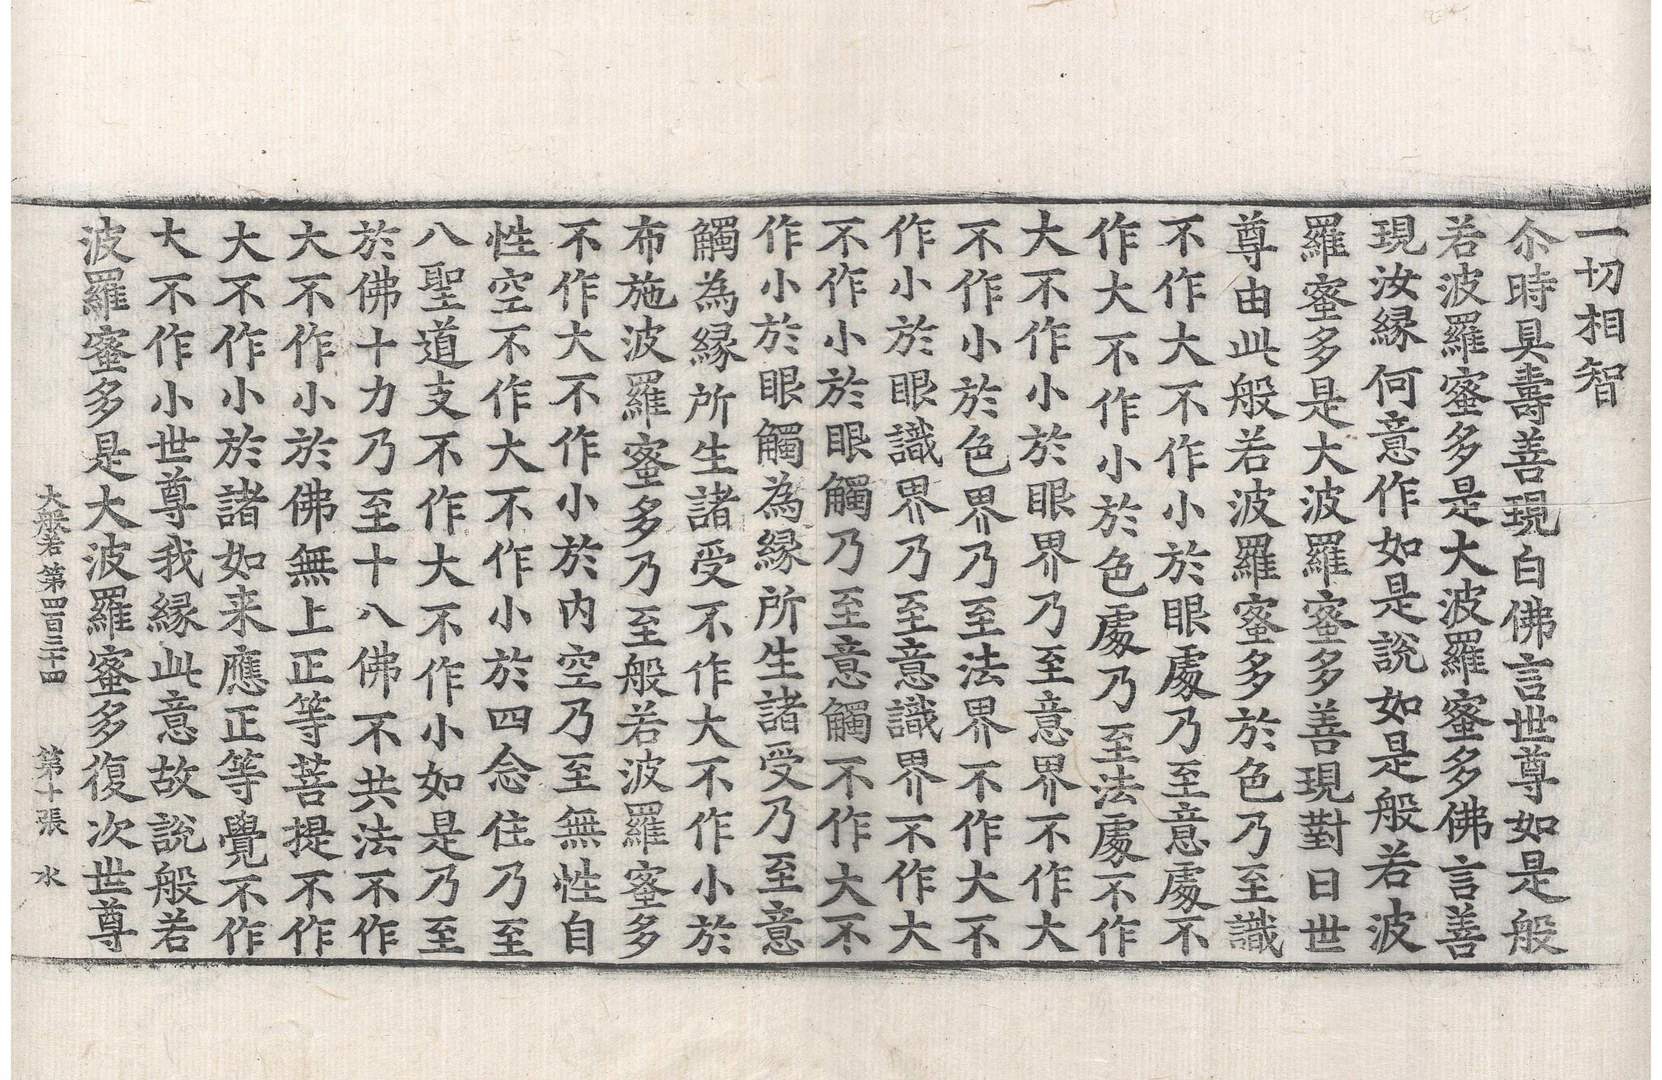 一切相智
尒時具壽善現白佛言世尊如是般
若波羅蜜多是大波羅蜜多佛言善
現汝緣何意作如是說如是般若波
羅蜜多是大波羅蜜多善現對曰世
尊由此般若波羅蜜多於色乃至識
不作大不作小於眼處乃至意處不
作大不作小於色處乃至法處不作
大不作小於眼界乃至意界不作大
不作小於色界乃至法界不作大不
作小於眼識界乃至意識界不作大
不作小於眼觸乃至意觸不作大不
作小於眼觸為緣所生諸受乃至意
觸為緣所生諸受不作大不作小於
布施波羅蜜多乃至般若波羅蜜多
不作大不作小於內空乃至無性自
性空不作大不作小於四念住乃至
八聖道支不作大不作小如是乃至
於佛十力乃至十八佛不共法不作
大不作小於佛無上正等菩提不作
大不作小於諸如来應正等覺不作
大不作小世尊我緣此意故說般若
波羅蜜多是大波羅蜜多復次世尊
大般若第四百三十四　第十張　水